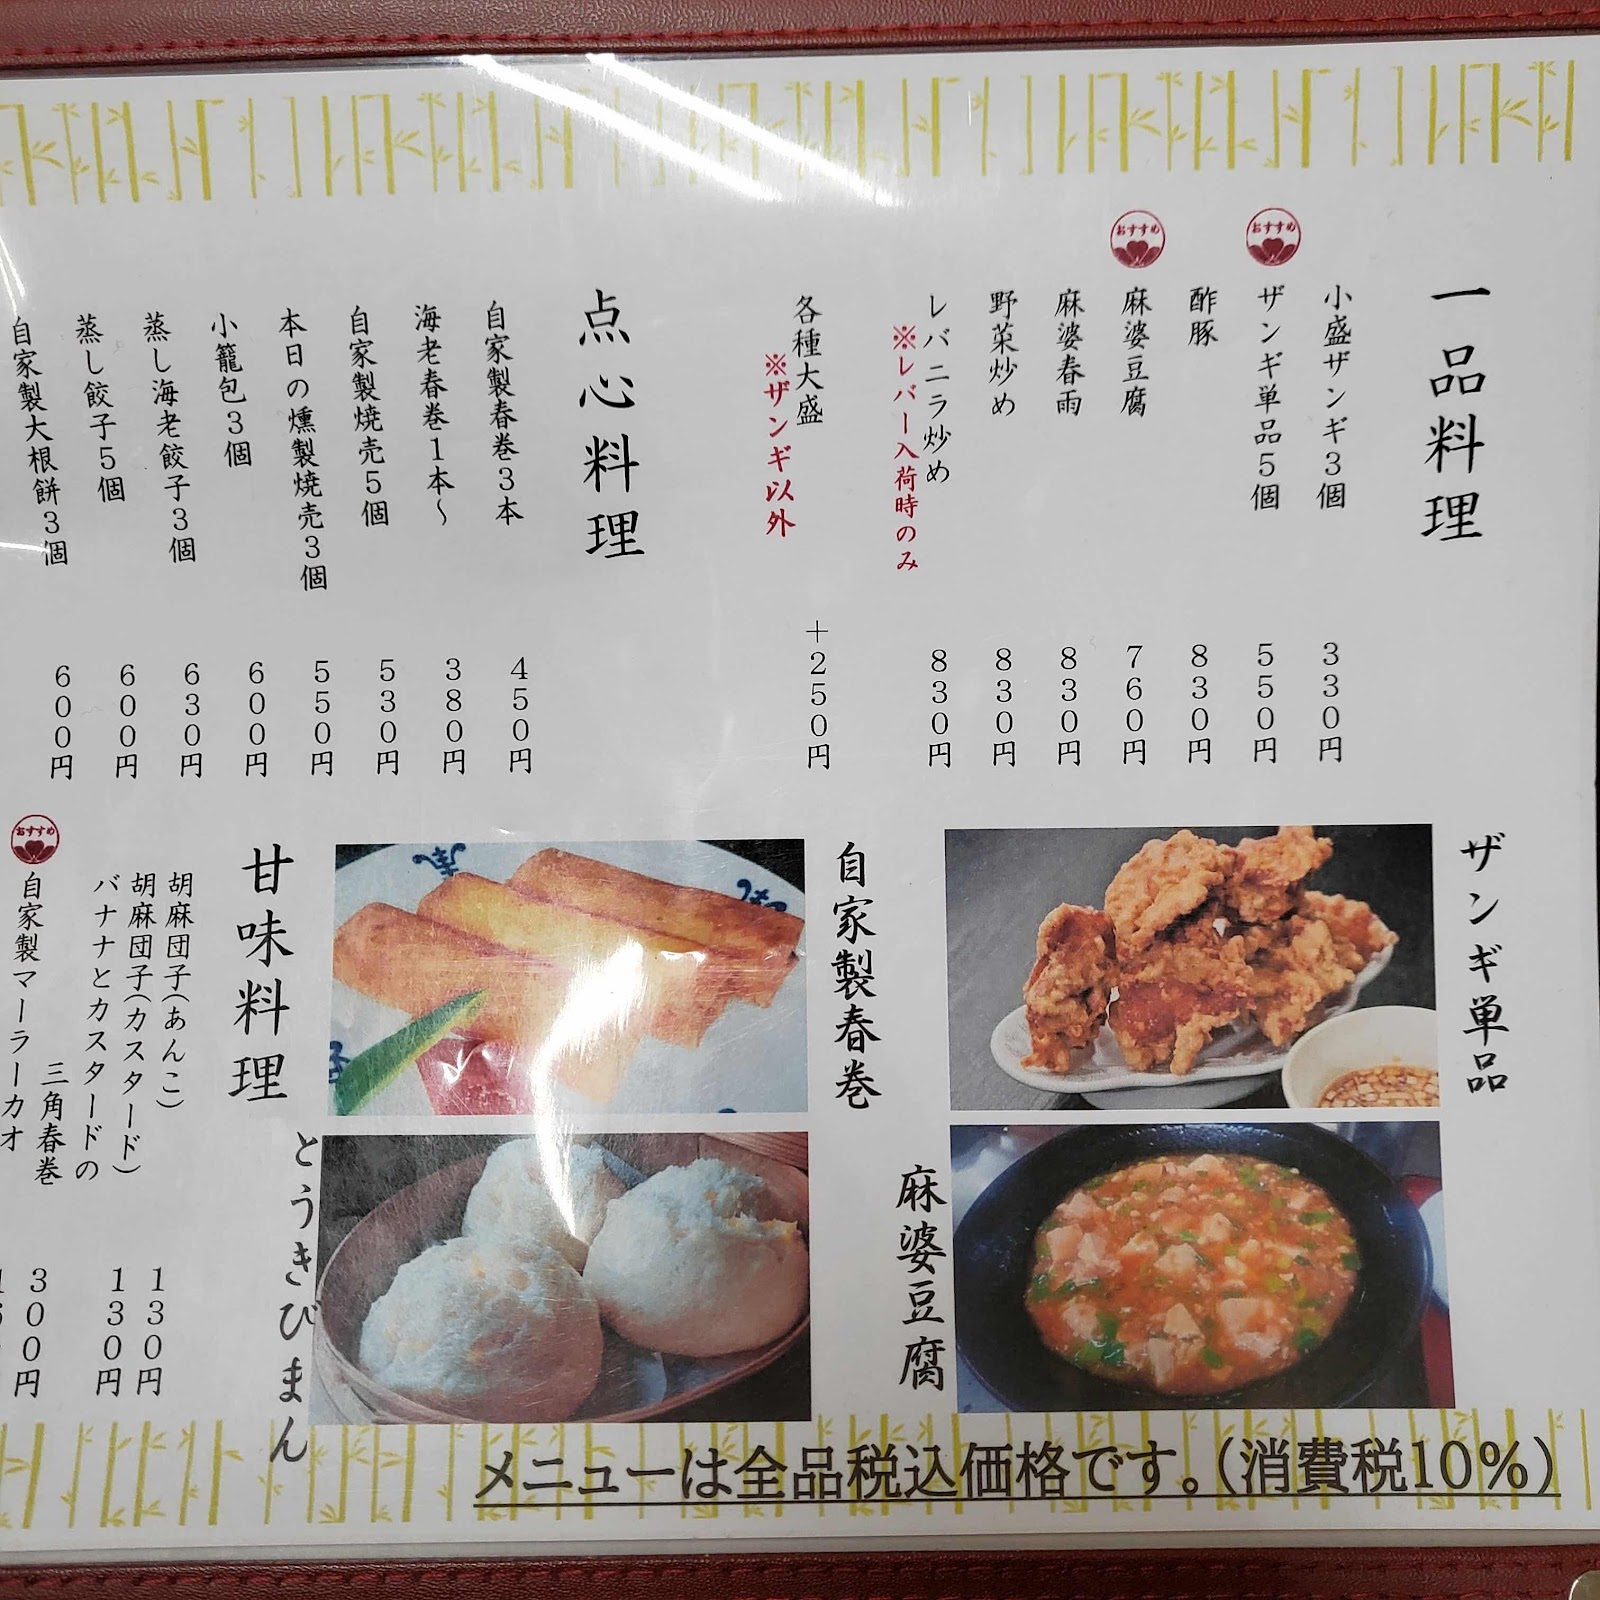 一品料理
小盛ザンギ3個 330円
おすすめ
ザンギ単品5個 550円
酢豚 830円
おすすめ
麻婆豆腐 760円
麻婆春雨 830円
野菜炒め 830円
レバニラ炒め 830円
※レバー入荷時のみ
各種大盛 +250円
※ザンギ以外
点心料理
自家製春巻3本 450円
海老春巻1本〜 380円
自家製焼売5個 530円
本日の燻製焼売3個 550円
小籠包3個 600円
蒸し海老餃子3個 630円
蒸し餃子5個 600円
自家製大根餅3個 600円
ザンギ単品
自家製春巻
麻婆豆腐
とうきびまん
甘味料理
胡麻団子(あんこ) 130円
胡麻団子(カスタード) 130円
バナナとカスタードの
三角春巻 300円
おすすめ
自家製マーラーカオ
メニューは全品税込価格です。(消費税10%)